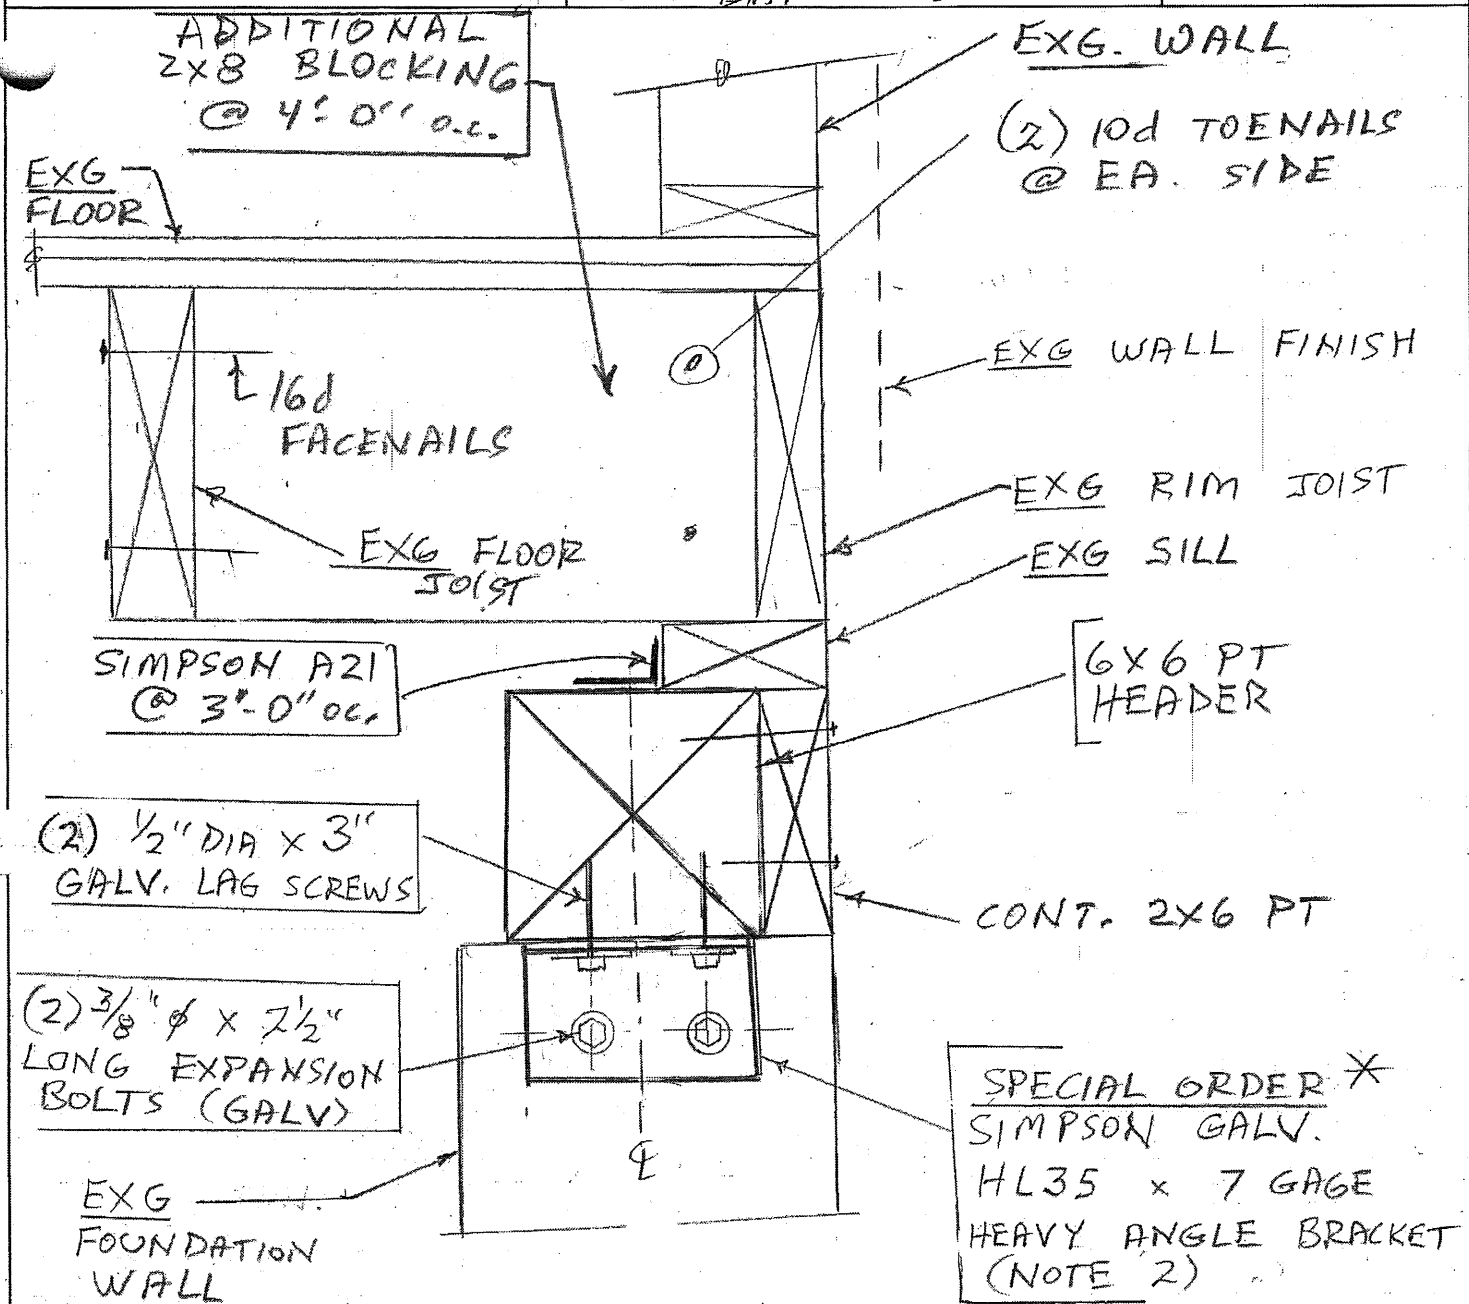 ADDITIONAL
2X8 BLOCKING
@ 4'-0" o.c.
EXG. WALL
(2) 10d TOENAILS
@ EA. SIDE
EXG
FLOOR
EXG WALL FINISH
16d
FACENAILS
EXG RIM JOIST
EXG FLOOR
JOIST
EXG SILL
SIMPSON A21
@ 3'-0" oc.
6X6 PT
HEADER
(2) 1/2" DIA X 3"
GALV. LAG SCREWS
CONT. 2X6 PT
(2) 3/8" ϕ X 7 1/2"
LONG EXPANSION
BOLTS (GALV)
℄
SPECIAL ORDER *
SIMPSON GALV.
HL35 x 7 GAGE
HEAVY ANGLE BRACKET
(NOTE 2)
EXG
FOUNDATION
WALL